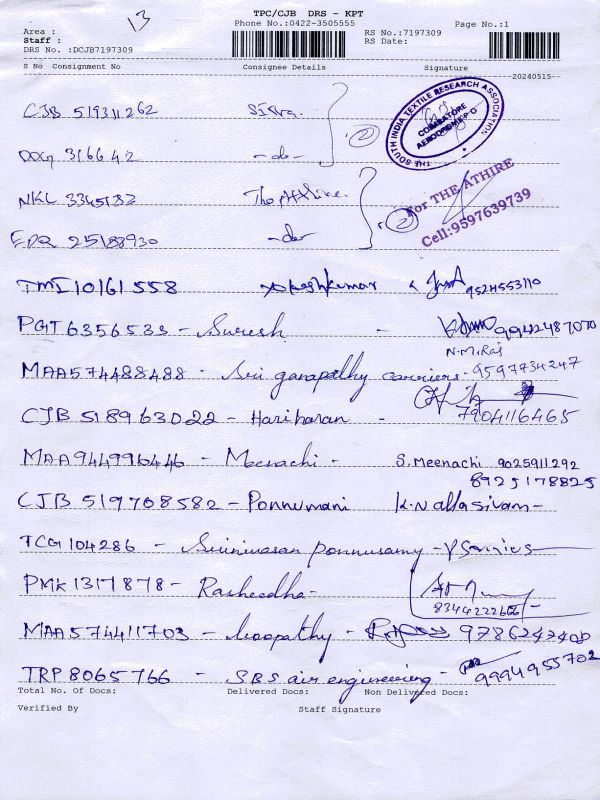 13
TPC/CJB DRS - KPT
Area :
Phone No.:0422-3505555
Page No.:1
Staff :
RS No.:7197309
DRS No. :DCJB7197309
RS Date:
S No Consignment No Consignee Details Signature
20240515
CJB 519311262 Sitra.
2
THE SOUTH INDIA TEXTILE RESEARCH ASSOCIATION
COIMBATORE
AERODROME P O
DOG 316642 -do-
NKL 3345182 The Athire.
2
For THE ATHIRE
Cell:9597639739
EDR 25188930 -do-
TMI 10161558 kumar 9524553110
PGT 6356533 - Suresh - 9942487070
N.M.Raj
MAA 574488488 - Sri ganapathy carriers - 9597734247
CJB 518963022 - Hariharan - 7904116465
MAA 944996446 - Meenachi - S. Meenachi 9025911292
8925178825
CJB 519708582 - Ponnumani K.Nallasivam
TCG 104286 - Srinivasan ponnusamy -
PMK 1317878 - Rasheedha -
8344222666
MAA 574411703 - Boopathy -
TRP 8065766 - SBS air engineering - 9994955702
Total No. Of Docs: Delivered Docs: Non Delivered Docs:
Verified By Staff Signature